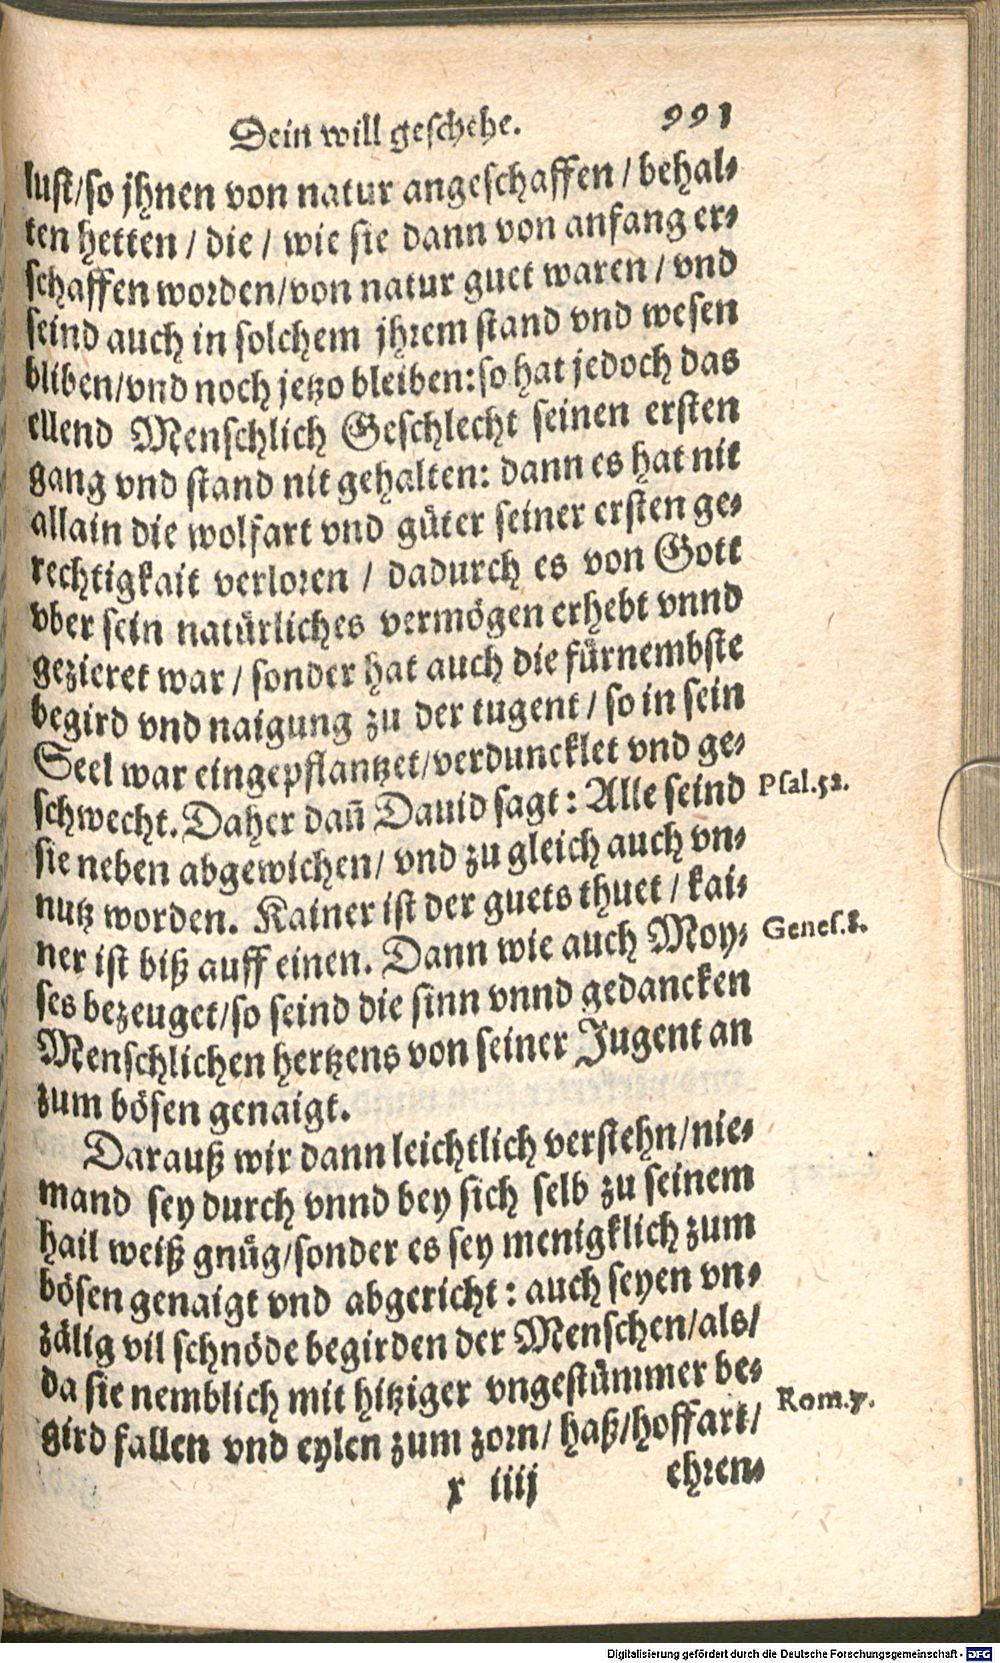 Dein will geschehe. 991
lust/so jhnen von natur angeschaffen / behal-
ten hetten / die / wie sie dann von anfang er-
schaffen worden/von natur guet waren / vnd
seind auch in solchem jhrem stand vnd wesen
bliben/vnd noch jetzo bleiben: so hat jedoch das
ellend Menschlich Geschlecht seinen ersten
gang vnd stand nit gehalten: dann es hat nit
allain die wolfart vnd güter seiner ersten ge-
rechtigkait verloren / dadurch es von Gott
vber sein natürliches vermögen erhebt vnnd
gezieret war / sonder hat auch die fürnembste
begird vnd naigung zu der tugent / so in sein
Seel war eingepflantzet/verduncklet vnd ge-
schwecht. Daher dañ Dauid sagt: Alle seind
Psal.52.
sie neben abgewichen/ vnd zu gleich auch vn-
nutz worden. Kainer ist der guets thuet / kai-
ner ist biß auff einen. Dann wie auch Moy-
Genes.8.
ses bezeuget/so seind die sinn vnnd gedancken
Menschlichen hertzens von seiner Jugent an
zum bösen genaigt.
Darauß wir dann leichtlich verstehn/nie-
mand sey durch vnnd bey sich selb zu seinem
hail weiß gnüg/sonder es sey menigklich zum
bösen genaigt vnd abgericht: auch seyen vn-
zälig vil schnöde begirden der Menschen/als/
da sie nemblich mit hitziger vngestümmer be-
Rom.7.
gird fallen vnd eylen zum zorn/ haß/hoffart/
x iiij ehren-
Digitalisierung gefördert durch die Deutsche Forschungsgemeinschaft - DFG